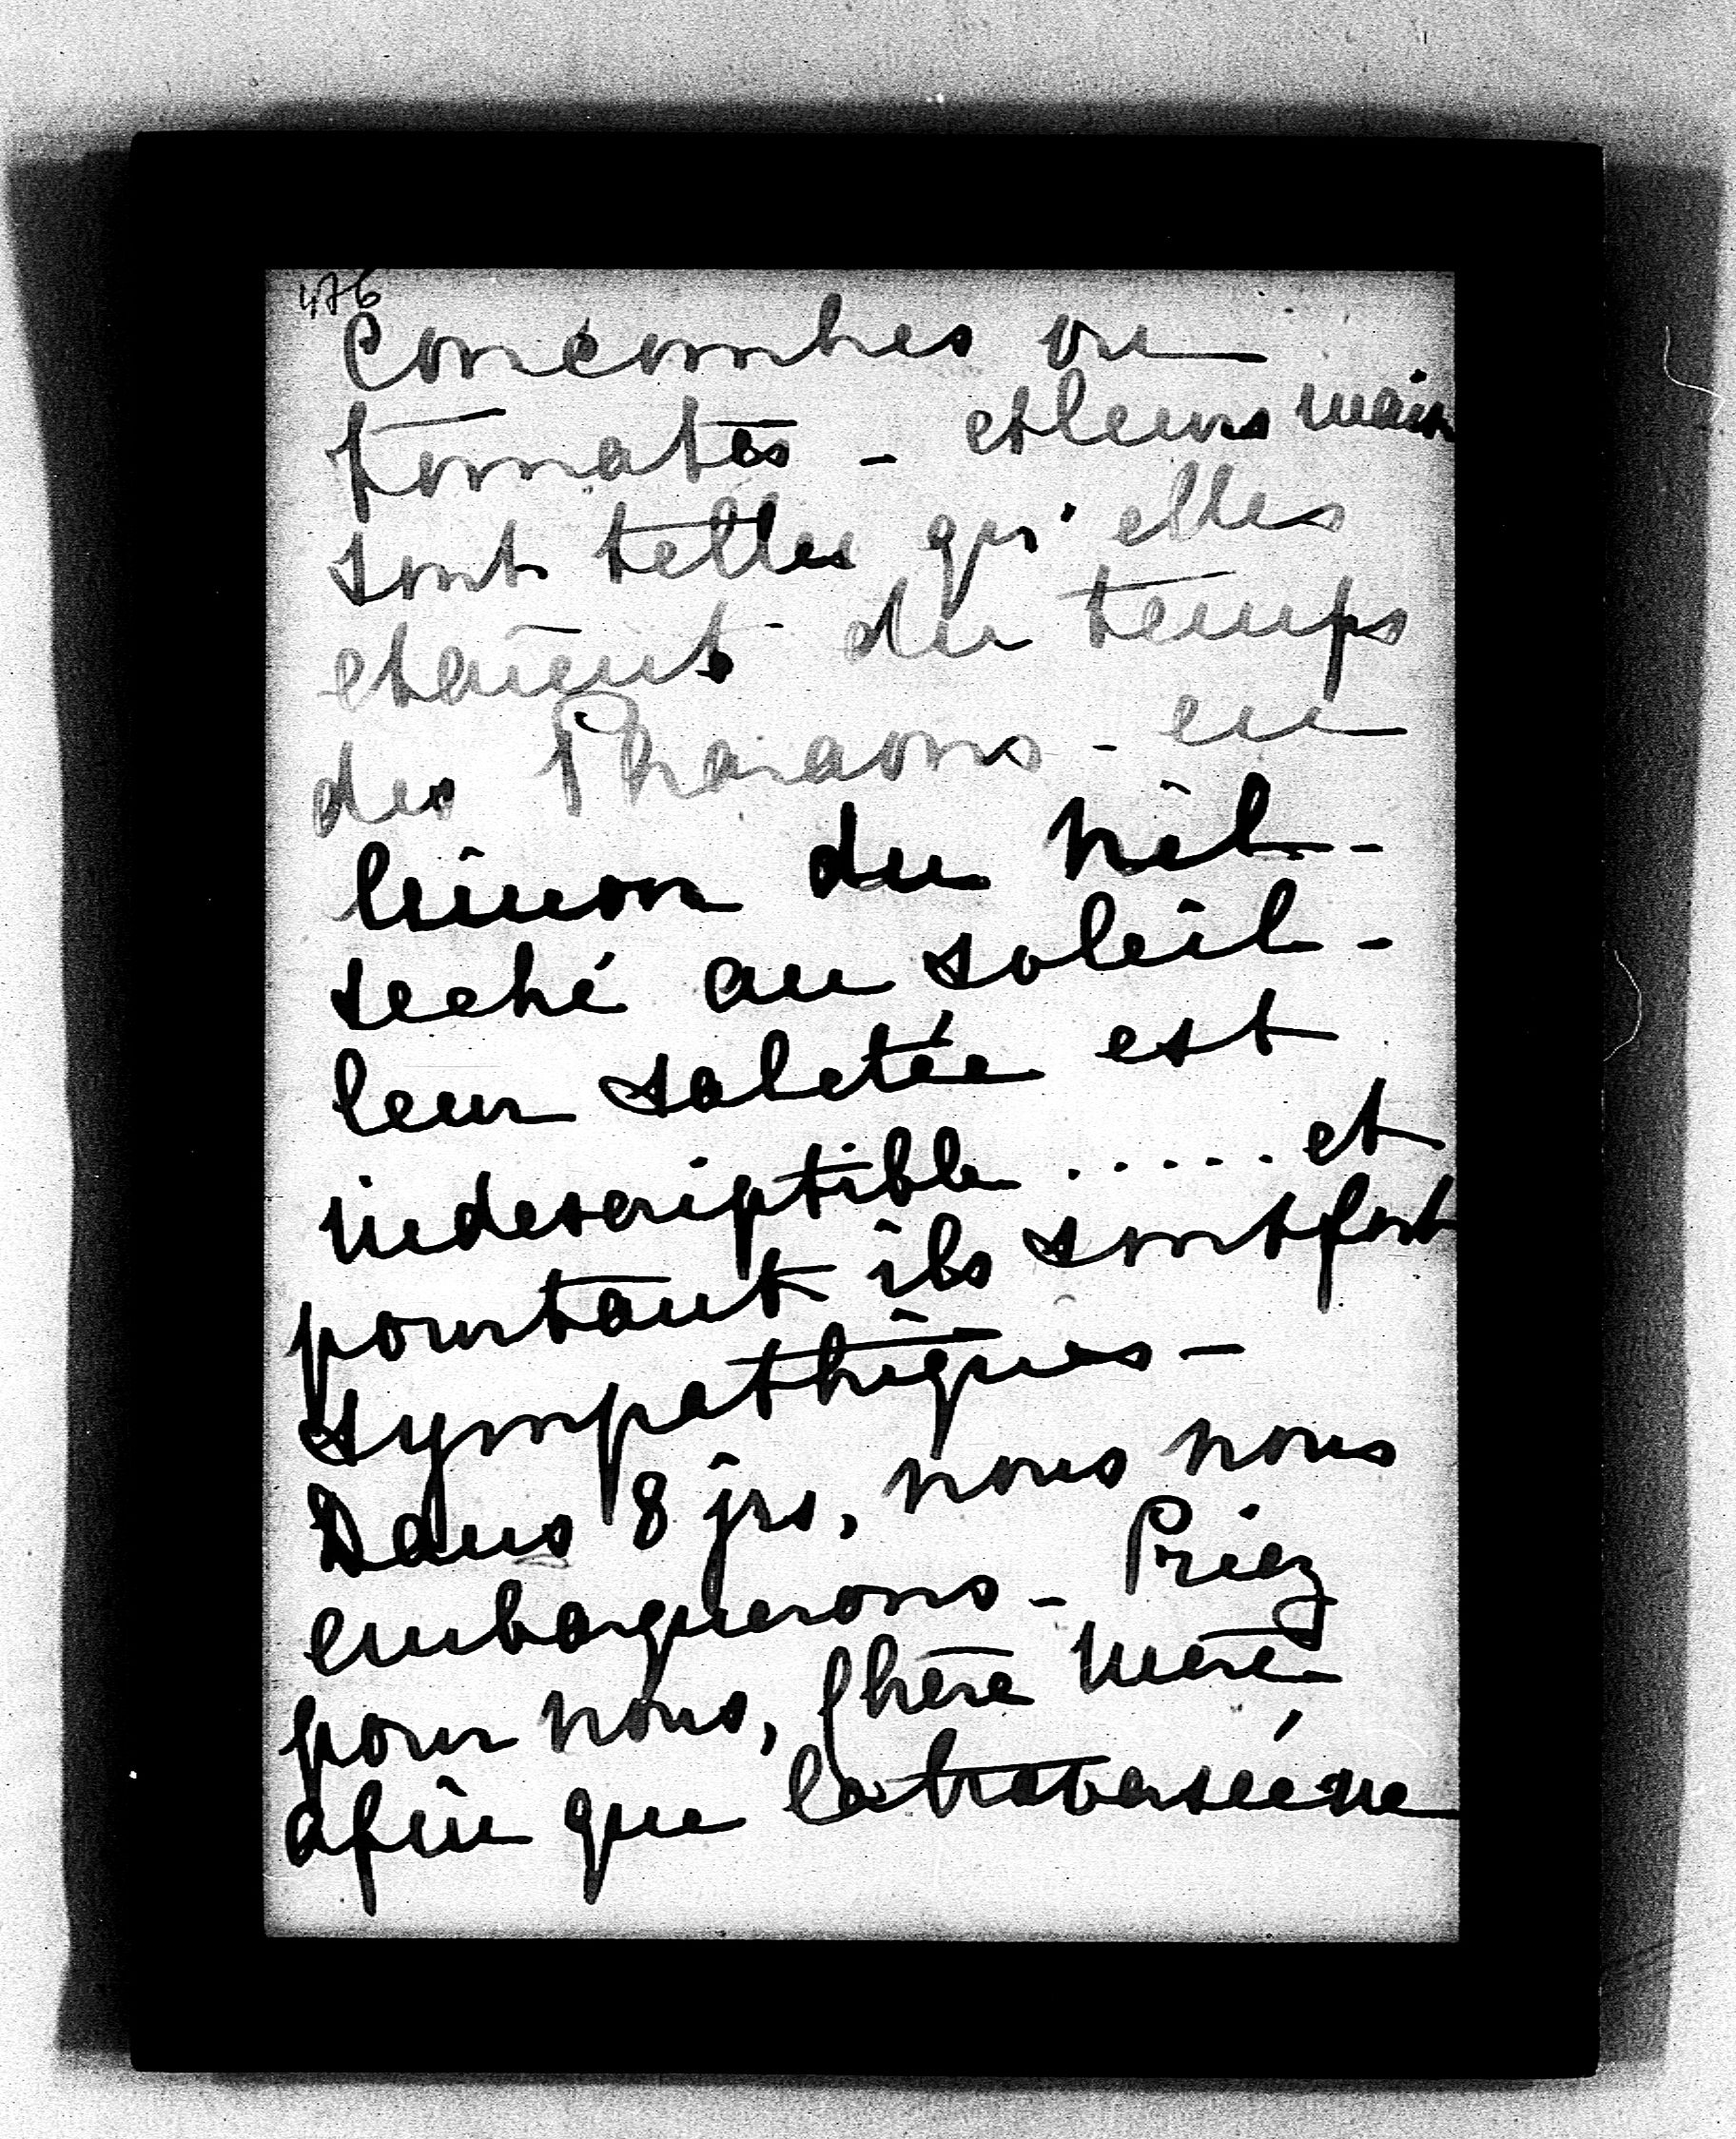 476
Concombres ou
tomates - et leurs maisons
sont telles qu'elles
etaient du temps
des Pharaons - en
limon du Nil -
seché au soleil -
leur saletée est
indescriptible ...... et
pourtant ils sont fort
sympathiques -
Dans 8 jrs, nous nous
embarquerons - Priez
pour nous, Chère Mère
afin que la traversée ne